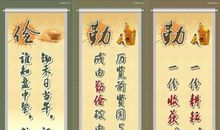 俭
锄禾日当午,
谁知盘中餐,
勤
历览前贤国
成由勤俭破
勤
一份耕耘
一份收获